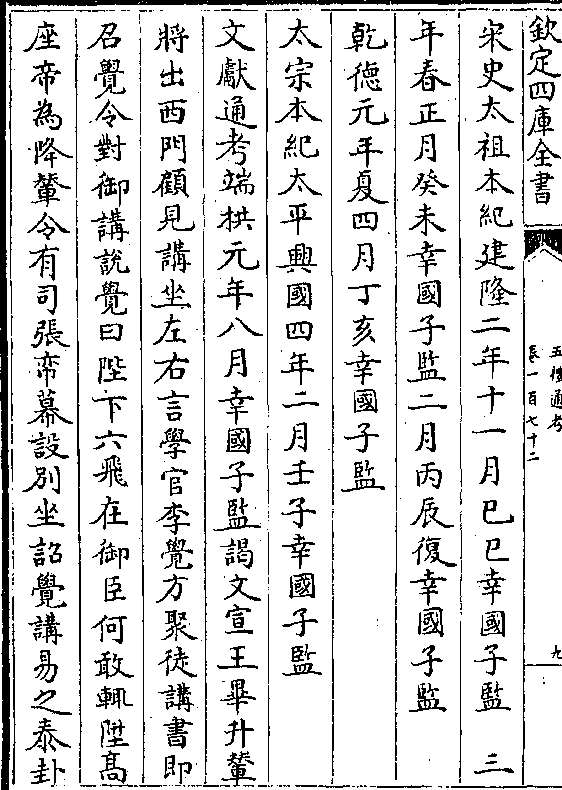 欽定四庫全書
五禮通考
卷一百七十二
九
宋史太祖本紀建隆二年十一月己巳幸國子監 三
年春正月癸未幸國子監二月丙辰復幸國子監
乾德元年夏四月丁亥幸國子監
太宗本紀太平興國四年二月壬子幸國子監
文獻通考端拱元年八月幸國子監謁文宣王畢升輦
將出西門顧見講坐左右言學官李覺方聚徒講書即
召覺令對御講說覺曰陛下六飛在御臣何敢輒陞高
座帝為降輦令有司張帟幕設別坐詔覺講易之泰卦